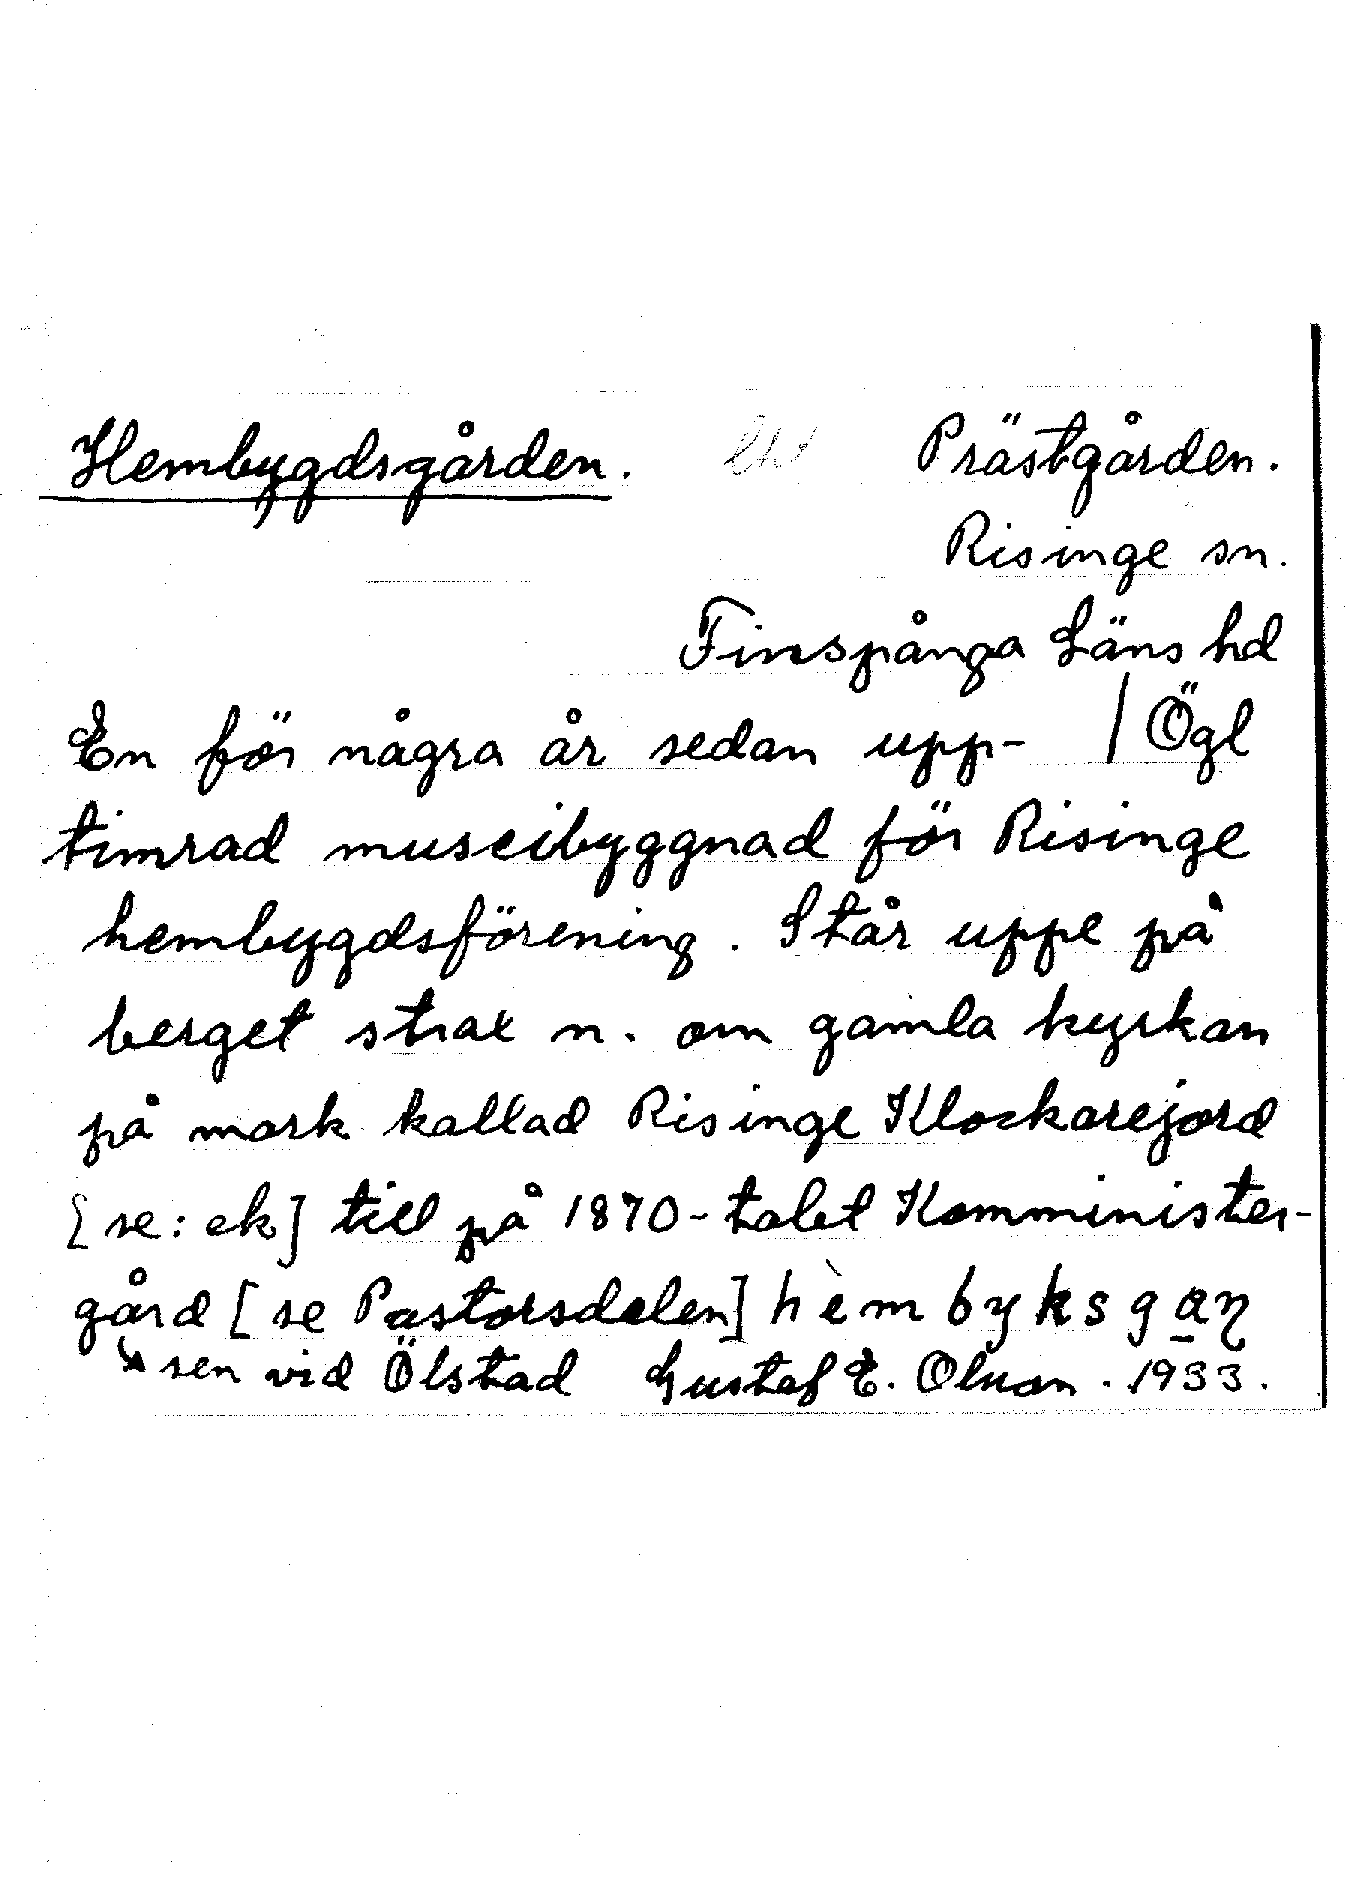 Hembygdsgården. Prästgården.
Risinge sn.
Finspånga Läns hd
En för några år sedan upp- / Ögl
timrad museibyggnad för Risinge
hembygdsförening. Står uppe på
berget strax n. om gamla kyrkan
på mark kallad Risinge Klockarejord
[se: ek] till på 1870-talet Komminister-
gård [se Pastorsdelen] hèmbyksgaꞃ
sen vid Ölstad Gustaf E. Olsson. 1933.